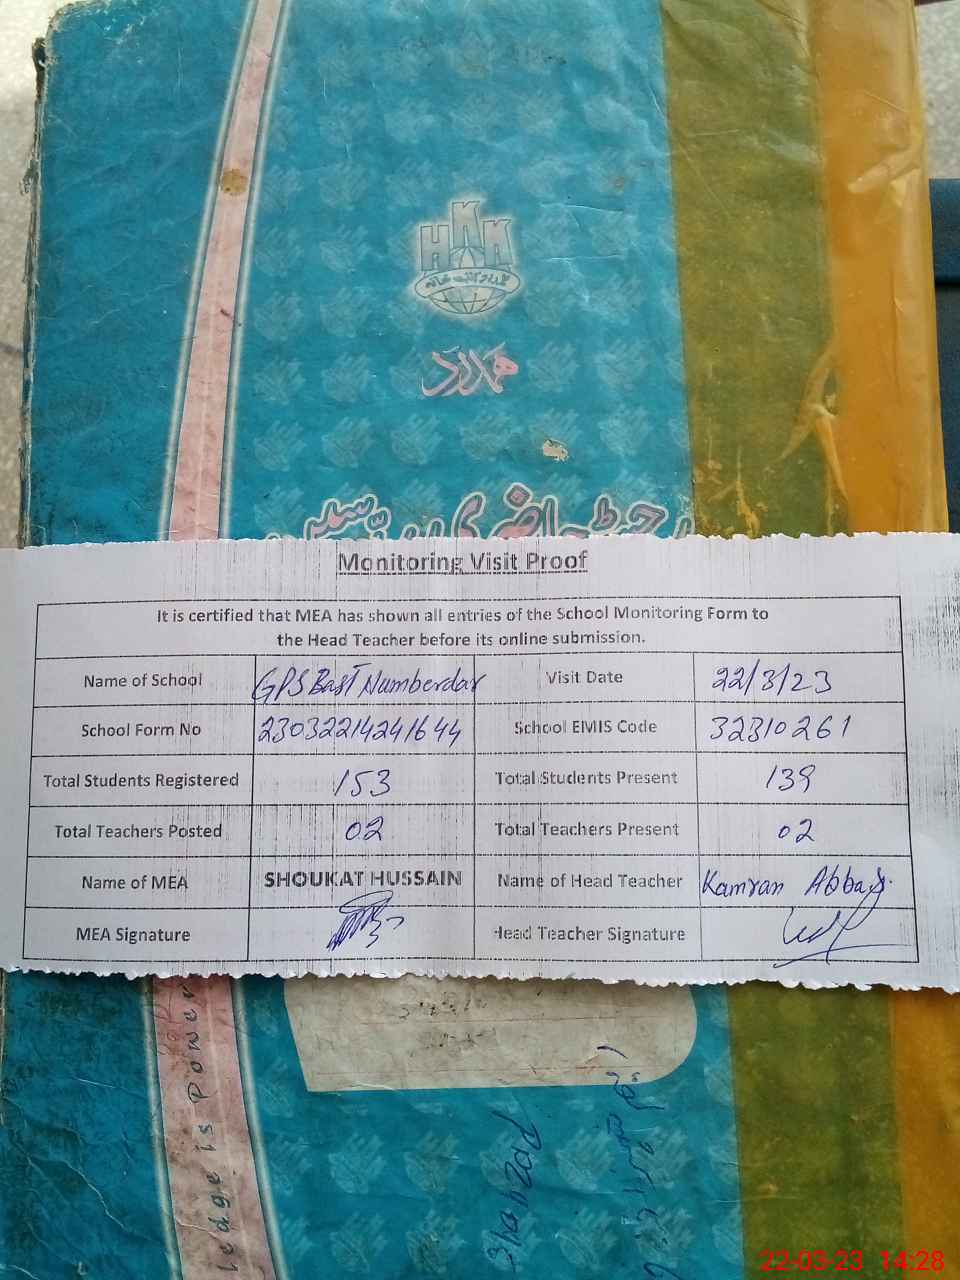 HKK
ہمدرد کتب خانہ
ہمدرد
Monitoring Visit Proof
It is certified that MEA has shown all entries of the School Monitoring Form to
the Head Teacher before its online submission.
Name of School GPS Basti Numberdar Visit Date 22/3/23
School Form No 23032214241644 School EMIS Code 32310261
Total Students Registered 153 Total Students Present 139
Total Teachers Posted 02 Total Teachers Present 02
Name of MEA SHOUKAT HUSSAIN Name of Head Teacher Kamran Abbas.
MEA Signature Head Teacher Signature
ledge is Power
Shahzad
22-03-23 14:28